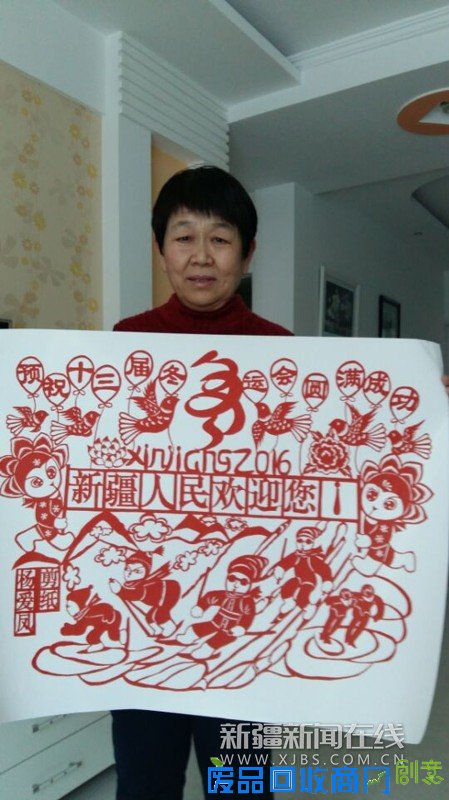 预祝十三届冬运会圆满成功
XinJiang2016
新疆人民欢迎您!
剪纸
杨爱凤
新疆新闻在线
WWW.XJBS.COM.CN
废品回收商门
创意